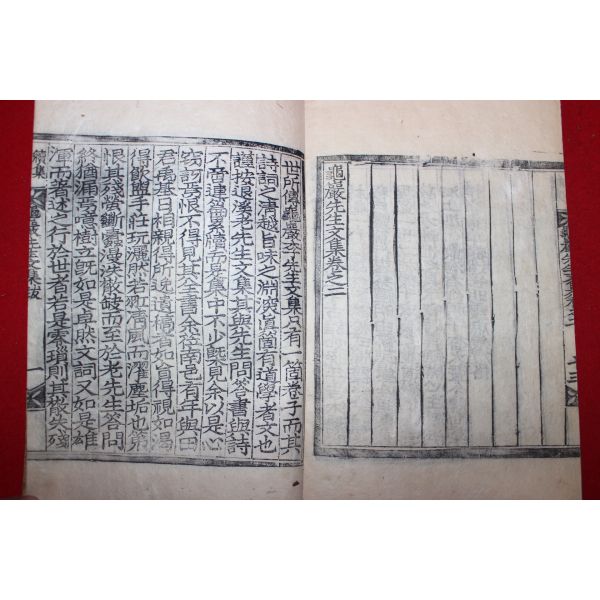 龜巖先生文集卷之二
世所傳龜巖李先生文集只有一箇卷子而其
詩詞之清越旨味之淵深眞箇有道學者文也
謹按退溪老先生文集其與先生問答書與詩
不啻連篇累牘而是集中不少旣見余以是心
竊訝焉恨不得見其全書余莅南邑有年與田
君禹基日相親得所逸遺稿者如得視如渴
得飮盥手莊玩灑然若清風而濯塵垢也第
恨其殘斷漫漶散缺而至於老先生答問
終猶漏焉噫樹立旣如是卓然文詞又如是雄
渾而著述之行於世者若是零瑣則其散失殘
續集 龜巖先生文集跋 一